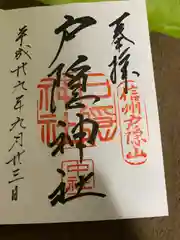 奉拝
信州戸隠山
戸隠神社
平成廿九年九月廿三日